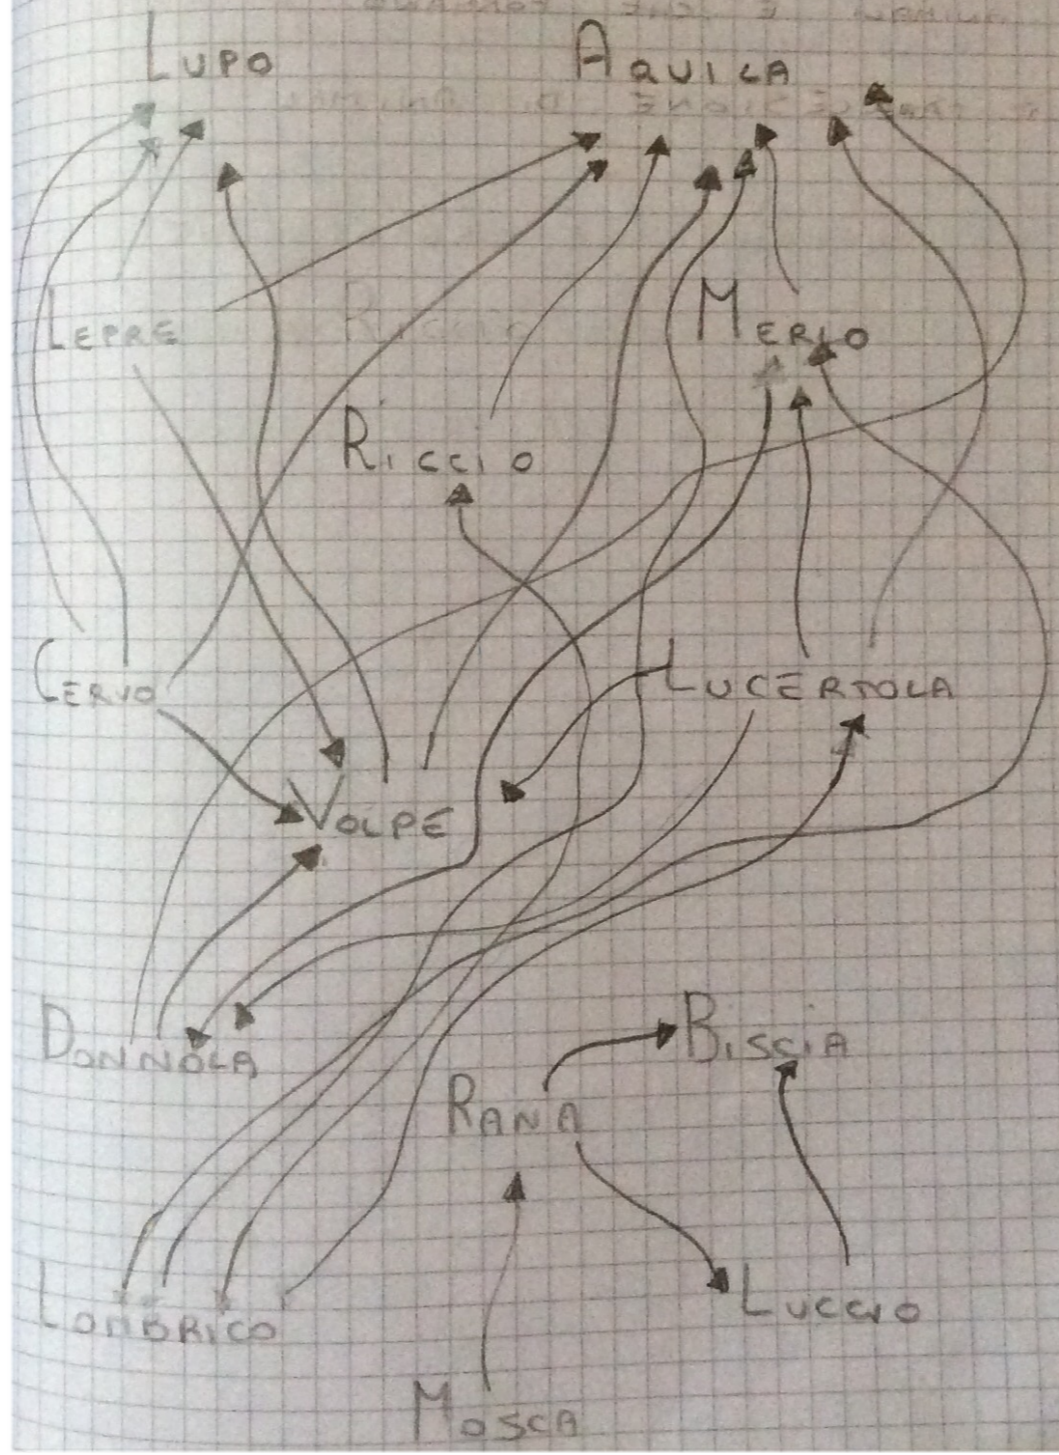 Lupo
Aquila
Lepre
Merlo
Riccio
Cervo
Lucertola
Volpe
Donnola
Biscia
Rana
Lombrico
Luccio
Mosca